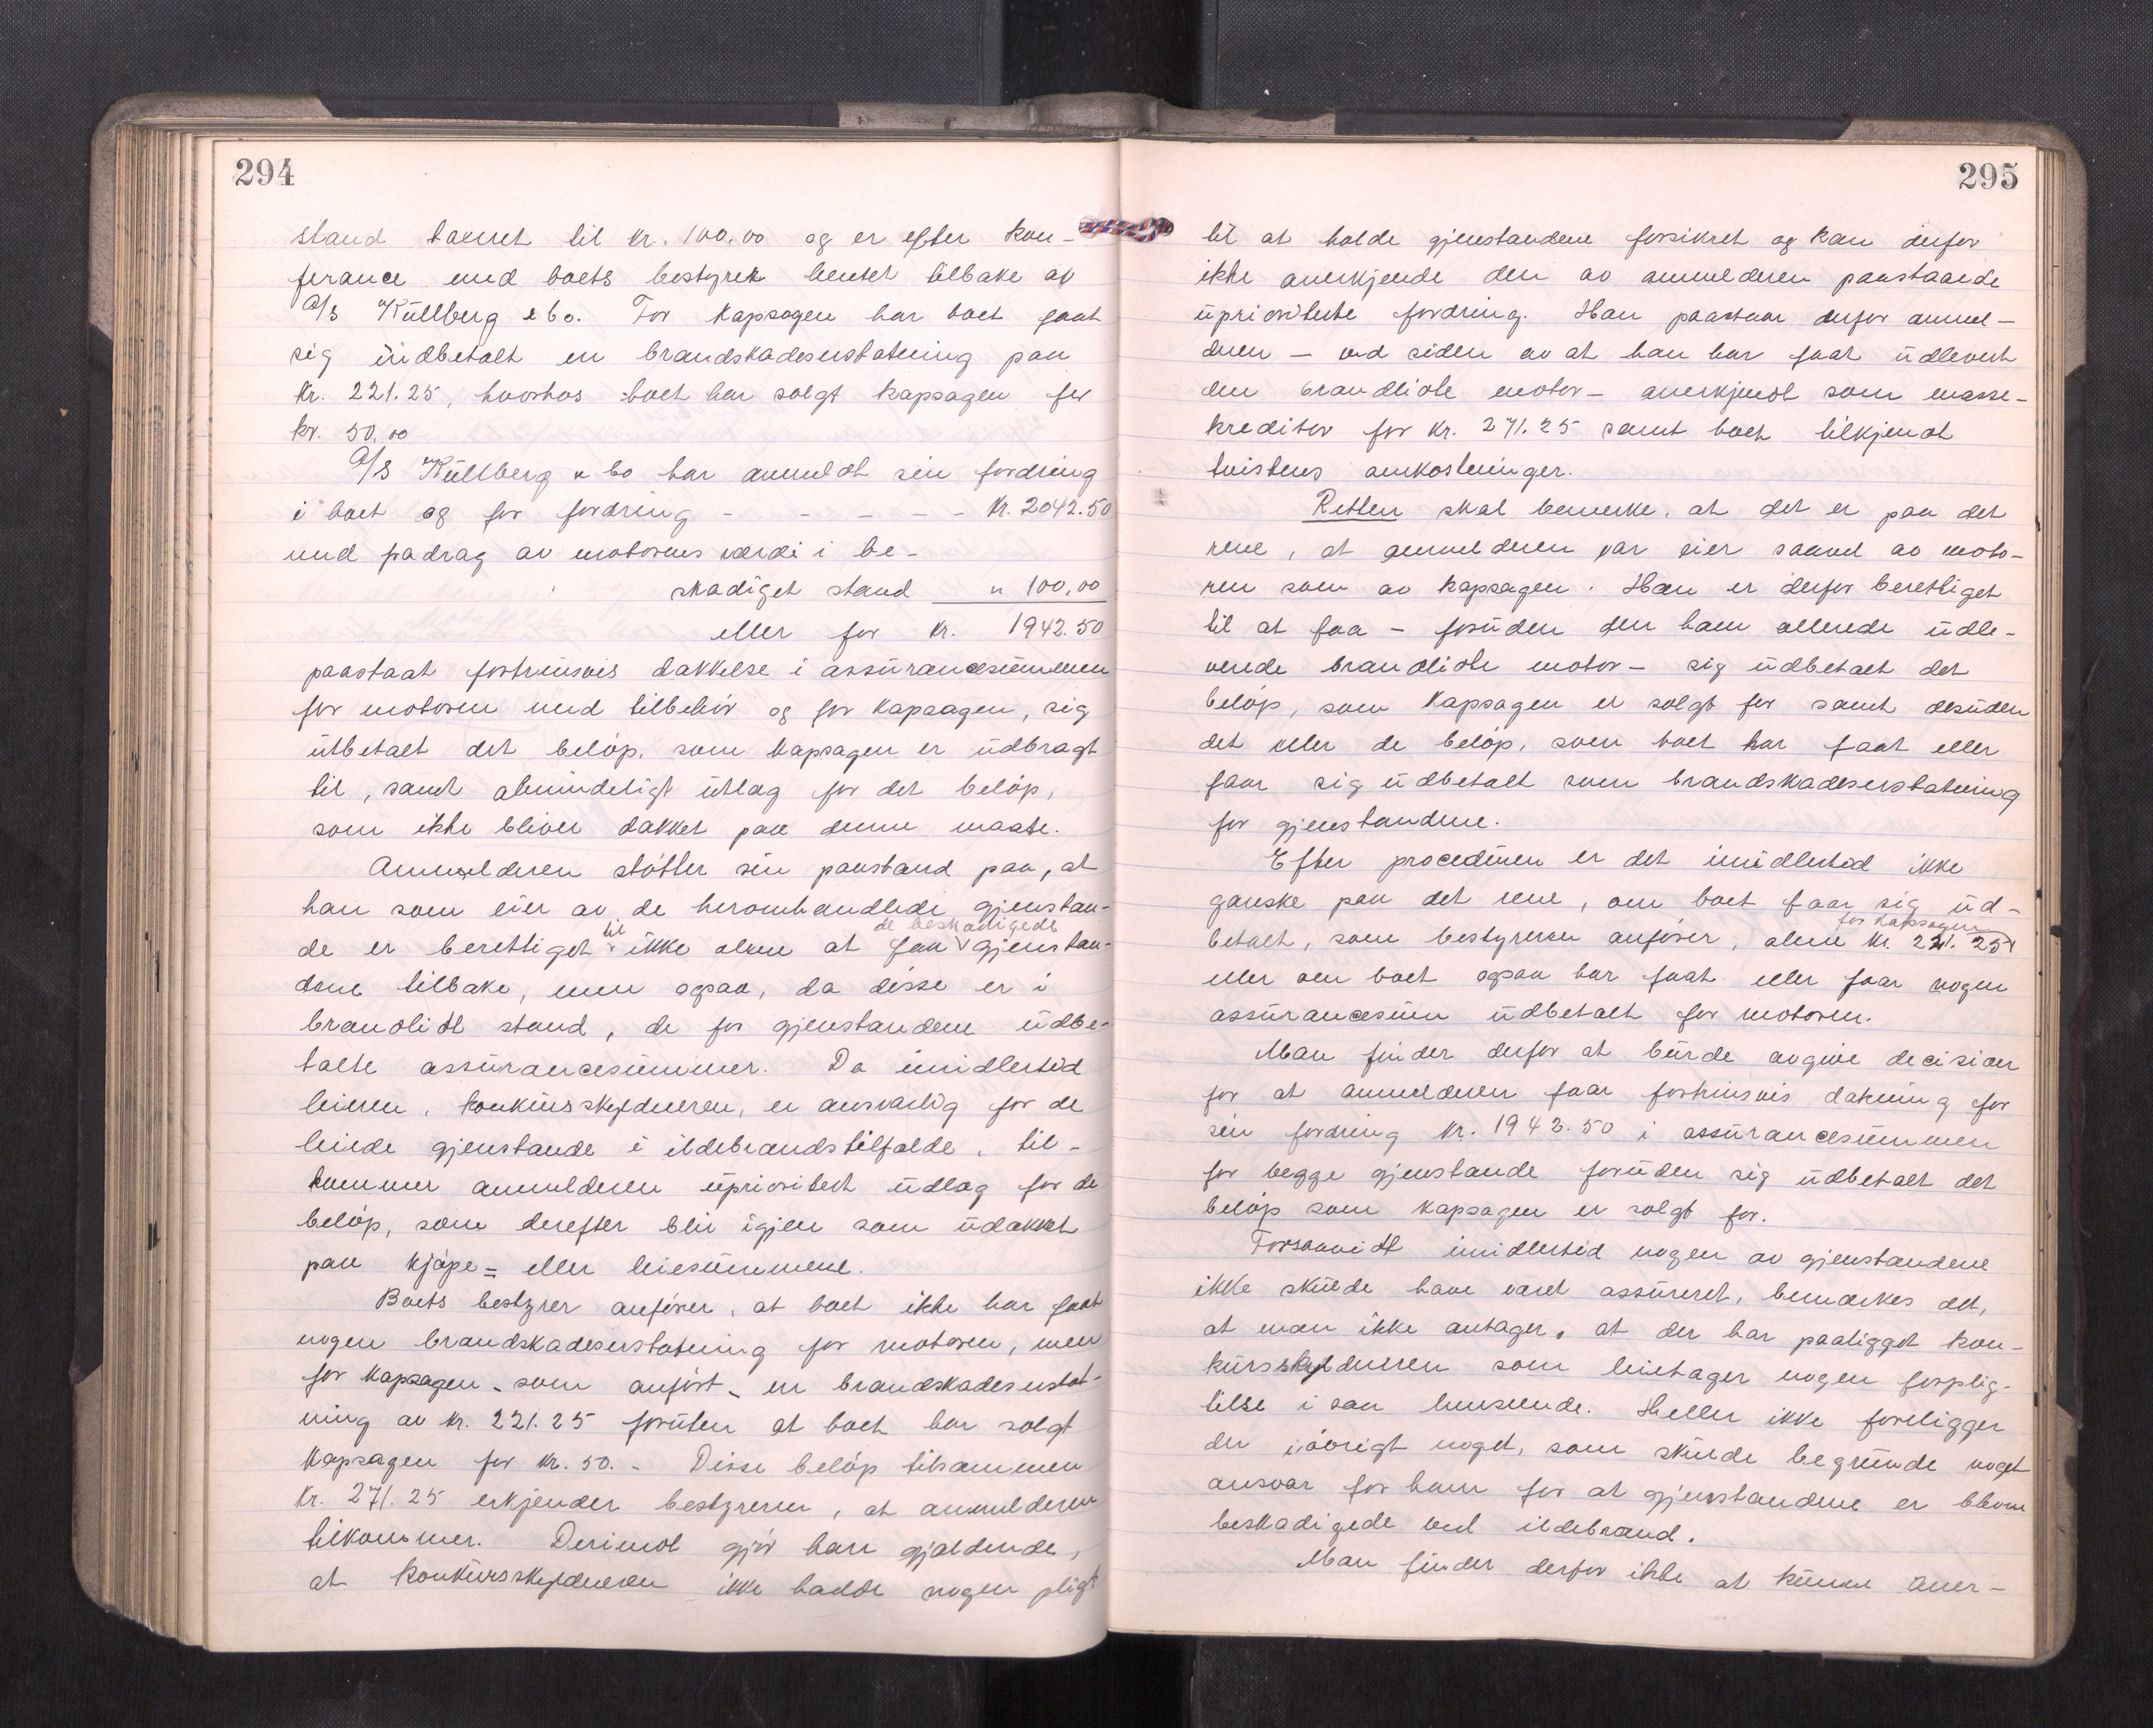 294
stand taxert til kr. 100.00 og er efter kon-
ferance med boets bestyrer hentet tilbake av
A/S Küllberg & Co. For kapsagen har boet faat
sig indbetalt en brandskadeserstatning paa
kr. 221.25, hvorhos boet har solgt kapsagen for
kr. 50.00
A/S Küllberg & Co har anmeldt sin fordring
i boet og for fordring - - - - - - kr. 2042.50
med fradrag av motorens værdi i be-
skadiget stand " 100.00
eller for kr. 1942.50
paastaat fortrinsvis dækkelse i assürancesümmen
for motoren med tilbehör og for kapsagen, sig
ütbetalt det belöp, som kapsagen er üdbragt
til, samt almindeligt ütlæg for det belöp,
som ikke bliver dækket paa denne maate.
Anmelderen stötter sin paastand paa, at
han som eier av de heromhandlede gjenstan-
de er berettiget til ikke alene at faa de beskadigede gjenstan-
dene tilbake, men ogsaa, da disse er i
brandlidt stand, de for gjenstandene üdbe-
talte assürancesümmer. Da imidlertid
leieren, konkürsskyldneren, er ansvarlig for de
leiede gjenstande i ildebrandstilfælde, til-
kommer anmelderen üprioritert üdlæg for de
belöp, som derefter blir igjen som üdækket
paa kjöpe= eller leiesümmene.
Boets bestyrer anförer, at boet ikke har faat
nogen brandskadeserstatning for motoren, men
for kapsagen - som anfört - en brandskadeserstat-
ning av kr. 221.25 forüten at boet har solgt
kapsagen for kr. 50.- Disse belöp tilsammen
kr. 271.25 erkjender bestyreren, at anmelderen
tilkommer. Derimot gjör han gjældende,
at konkürsskyldneren ikke hadde nogen pligt
295
til at holde gjenstandene forsikret og kan derfor
ikke anerkjende den av anmelderen paastaaede
üprioriterte fordring. Han paastaar derfor anmel-
deren - ved siden av at han har faat üdlevert
den brandlidte motor - anerkjendt som masse-
kreditor for kr. 271.25 samt boet tilkjendt
tvistens omkostninger.
Retten skal bemerke, at det er paa det
rene, at anmelderen var eier saavel av moto-
ren som av kapsagen. Han er derfor berettiget
til at faa - forüden den ham allerede üdle-
verede brandlidte motor - sig üdbetalt det
belöp, som kapsagen er solgt for samt desüden
det eller de belöp, som boet har faat eller
faar sig üdbetalt som brandskadeserstatning
for gjenstandene.
Efter procedüren er det imidlertid ikke
ganske paa det rene, om boet faar sig üd-
betalt, som bestyreren anförer, alene kr. 221.25 for kapsagen
eller om boet ogsaa har faat eller faar nogen
assürancesüm üdbetalt for motoren.
Man finder derfor at bürde avgive decision
for at anmelderen faar fortrinsvis dækning for
sin fordring kr. 1942.50 i assürancesümmen
for begge gjenstande forüden sig üdbetalt det
belöp som kapsagen er solgt for.
Forsaavidt imidlertid nogen av gjenstandene
ikke skülde have været assüreret, bemærkes det,
at man ikke antager, at der har paaligget kon-
kürsskyldneren som leietager nogen forplig-
telse i saa henseende. Heller ikke foreligger
der iövrigt noget, som skülde begründe noget
ansvar for ham for at gjenstandene er blevne
beskadigede ved ildebrand.
Man finder derfor ikke at künne aner-